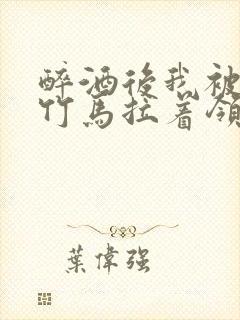 醉酒後我被
竹馬拉着領
葉偉强